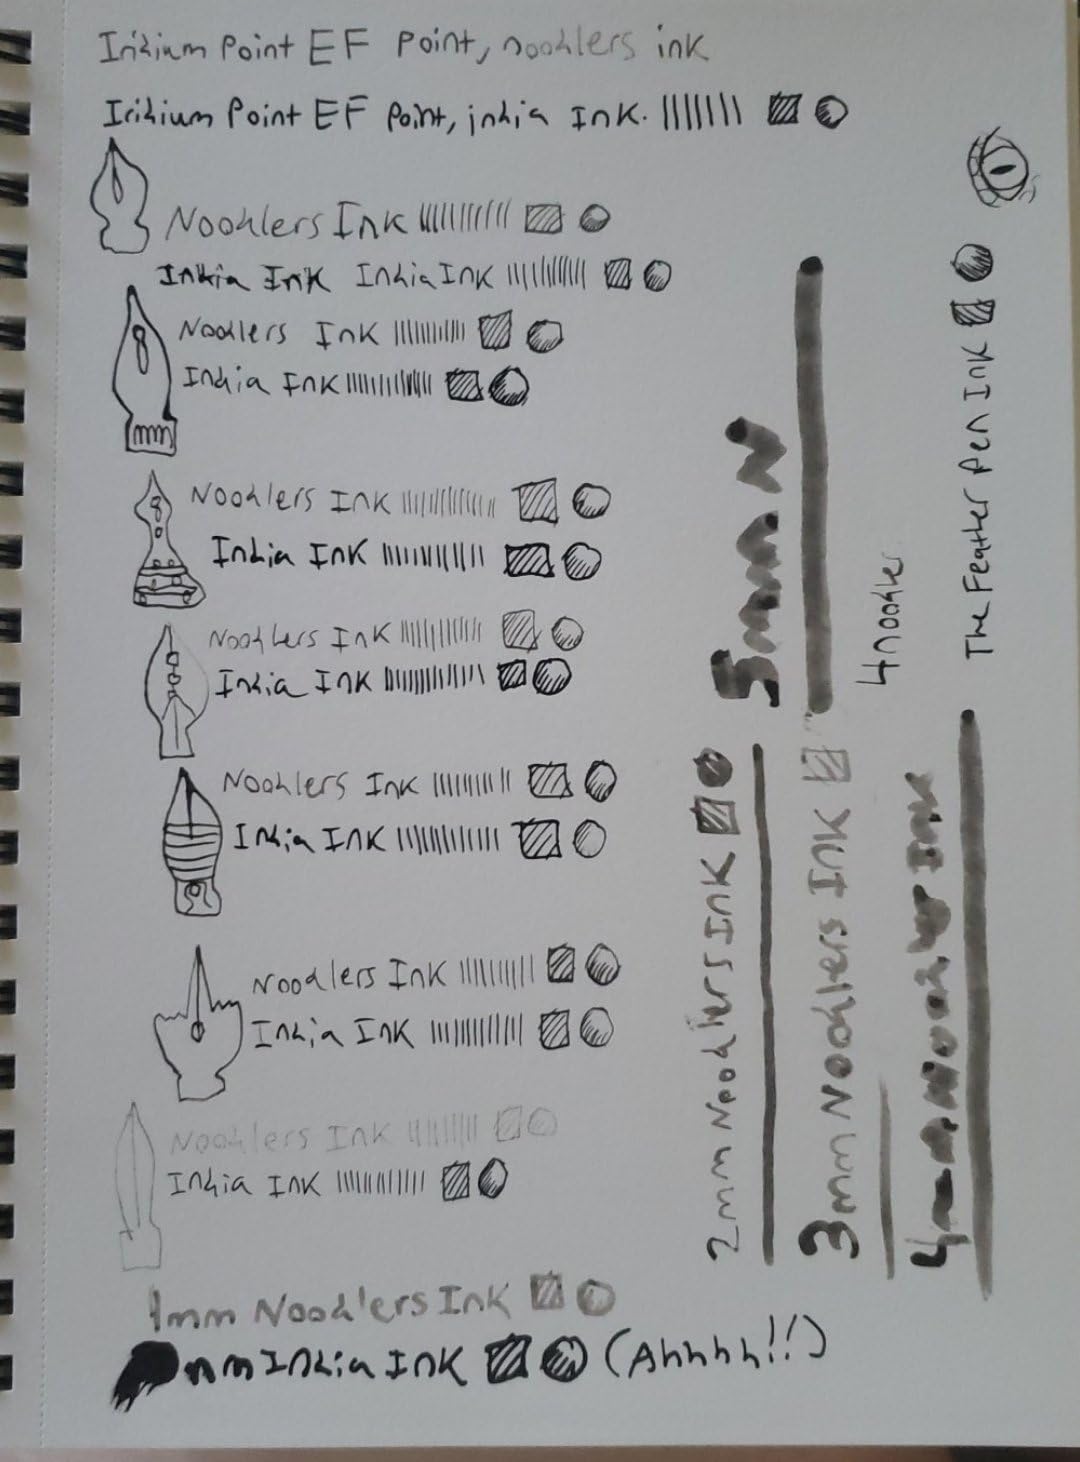 Iridium Point EF Point, noodlers ink
Iridium Point EF Point, india Ink.
Noodlers Ink
India Ink India Ink
Noodlers Ink
India Ink
Noodlers Ink
India Ink
Noodlers Ink
India Ink
Noodlers Ink
India Ink
Noodlers Ink
India Ink
Noodlers Ink
India Ink
1mm Noodlers Ink
mm India Ink (Ahhhh!!)
2mm Noodlers Ink
5mm N
3mm Noodlers Ink
4noodler
4mm Noodler Ink
The Feather Pen Ink